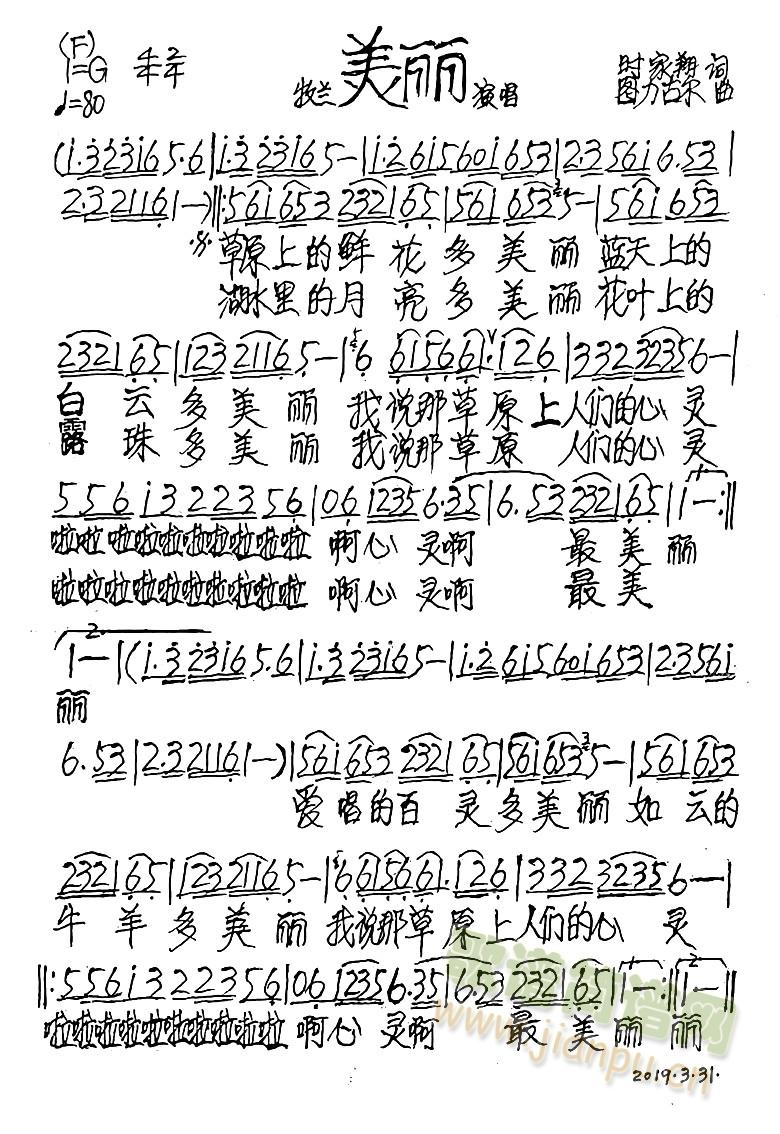 (F)
1=G 4/4 2/4
♩=80
美丽
牧兰 演唱
时家翔 词
图力古尔 曲
(1·3 23165·6|1·3 23165-|1·2 61560i653|2·3561 6·53|
2·3 2116 1-)‖:561653 2321 65|561653 5-|561 653
草原上的鲜花多美丽 蓝天上的
湖水里的月亮多美丽 花叶上的
2321 65|123 21165-|6 61566·126|332 32356-|
白云多美丽 我说那草原上人们的心灵
露珠多美丽 我说那草原 人们的心灵
556 13 223 56|06 12356·35|6·53 232165|1-:‖
啦啦啦啦啦啦啦啦啦 啊心灵啊 最美丽
啦啦啦啦啦啦啦啦啦 啊心灵啊 最美
1-|(1·3 23165·6|1·3 23165-|1·2 61560i653|2·3561
丽
6·53|2·3 2116 1-)|561653 2321 65|561653 5-|561653
爱唱的百灵多美丽 如云的
2321 65|123 21165-|6 61566·126|332 32356-|
牛羊多美丽 我说那草原上人们的心灵
‖:556 13 223 56|06 12356·35|6·53 2321 65|1-:‖1-‖
啦啦啦啦啦啦啦啦啦 啊心灵啊 最美丽 丽
歌谱简谱网
www.jianpu.cn
2019.3.31.